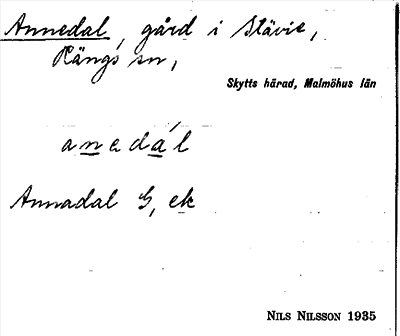 Annedal, gård i Stävie,
Räng[s] sn,
Skytts härad, Malmöhus län
anedál
Annadal G, ek
Nils Nilsson 1935